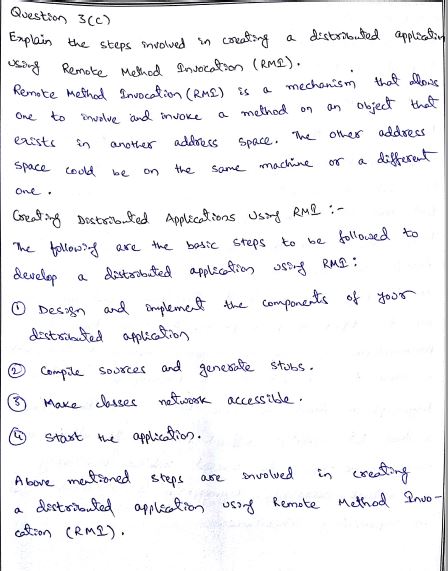 Question 3(c)
Explain the steps involved in creating a distributed application
using Remote Method Invocation (RMI).
Remote Method Invocation (RMI) is a mechanism that allows
one to involve and invoke a method on an object that
exists in another address space. The other address
space could be on the same machine or a different
one.
Creating Distributed Applications Using RMI :-
The following are the basic steps to be followed to
develop a distributed application using RMI :
① Design and implement the components of your
distributed application
② Compile sources and generate stubs.
③ Make classes network accessible.
④ Start the application.
Above mentioned steps are involved in creating
a distributed application using Remote Method Invo-
cation (RMI).